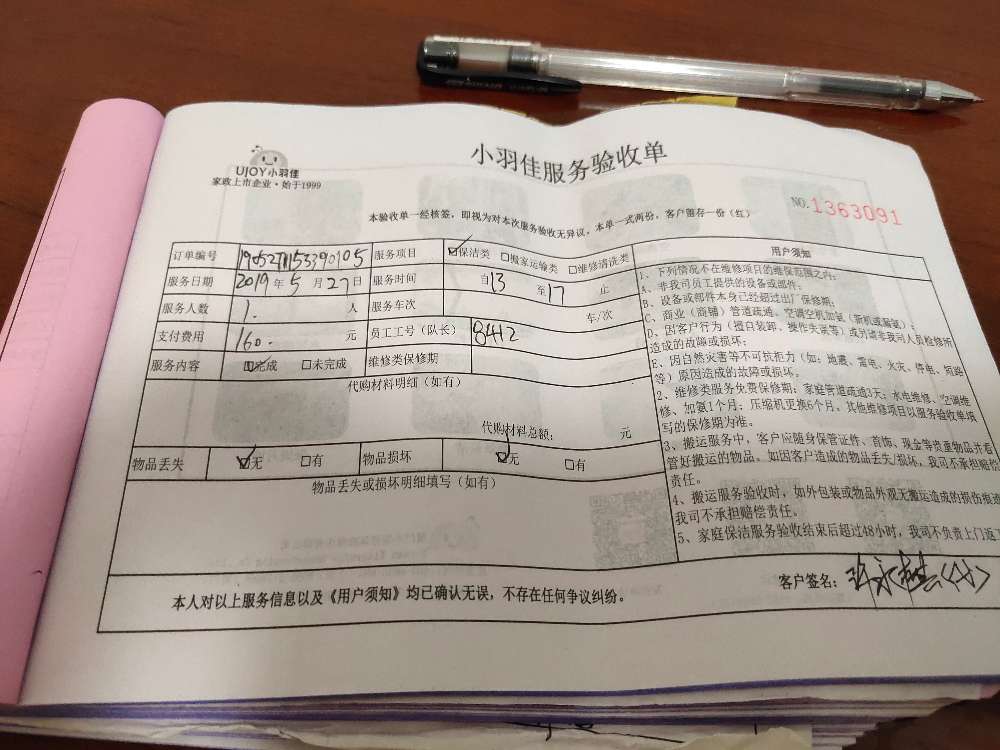 小羽佳服务验收单
UJOY小羽佳
家政上市企业·始于1999
NO.1363091
本验收单一经核签，即视为对本次服务验收无异议，本单一式两份，客户留存一份（红）
订单编号 服务项目 保洁类 搬家运输类 维修清洗类
服务日期 2019年5月27日 服务时间 自13至17止
服务人数 1. 人 服务车次 车/次
支付费用 160. 元 员工工号（队长） 8412
服务内容 完成 未完成 维修类保修期
代购材料明细（如有）
代购材料总额： 元
物品丢失 无 有 物品损坏 无 有
物品丢失或损坏明细填写（如有）
用户须知
1、下列情况不在维修项目的维保范围之内：
A、非我司员工提供的设备或部件；
B、设备或部件本身已经超过出厂保修期；
C、商业（商铺）管道疏通、空调空机加氨（新机或漏氨）；
D、因客户行为（擅自装卸、操作失误等）或另请非我司人员检修所
造成的故障或损坏；
E、因自然灾害等不可抗拒力（如：地震、雷电、火灾、停电、短路
等）原因造成的故障或损坏。
2、维修类服务免费保修期：家庭管道疏通3天；水电维修、空调维
修、如氨1个月；压缩机更换6个月，其他维修项目以服务验收单填
写的保修期为准。
3、搬运服务中，客户应随身保管证件、首饰、现金等贵重物品并看
管好搬运的物品。如因客户造成的物品丢失/损坏，我司不承担赔偿
责任。
4、搬运服务验收时，如外包装或物品外观无搬运造成的损伤痕迹
我司不承担赔偿责任。
5、家庭保洁服务验收结束后超过48小时，我司不负责上门返工
本人对以上服务信息以及《用户须知》均已确认无误，不存在任何争议纠纷。
客户签名：